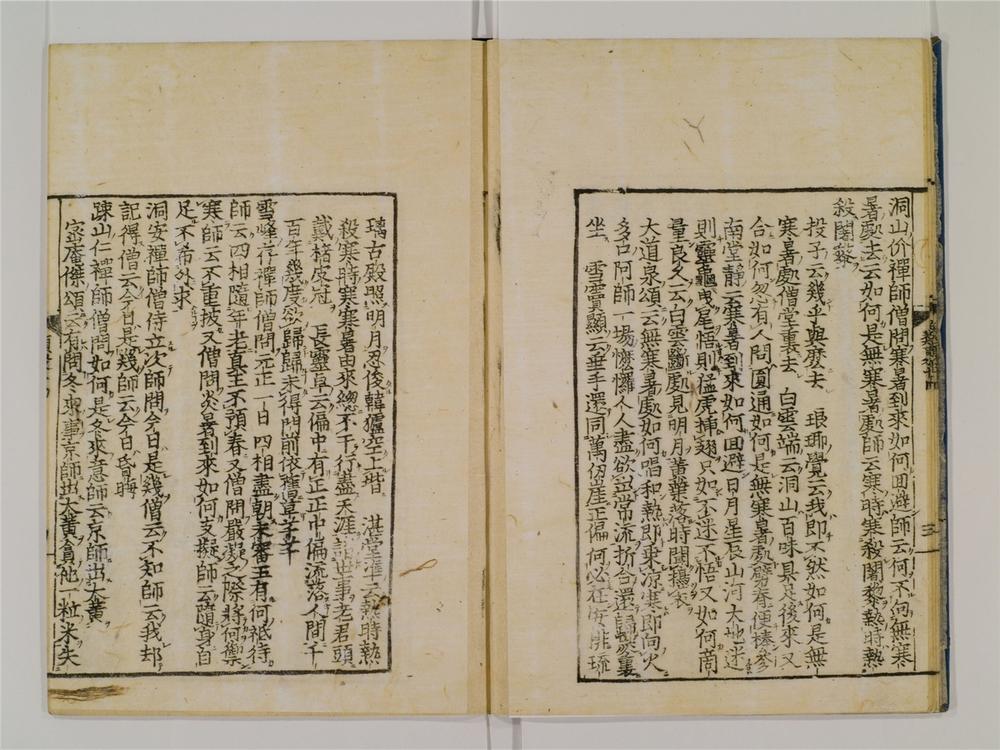 洞山价禪師僧問寒暑到來如何回避師云何不向無寒
暑處去云如何是無寒暑處師云寒時寒殺闍黎熱時熱
殺闍黎
投子云幾乎與麼去　琅琊覺云我即不然如何是無
寒暑處僧堂裏去　白雲端云洞山百味具足後來又
合如何忽有人問圓通如何是無寒暑處劈脊便棒
南堂靜云寒暑到來如何回避日月星辰山河大地迷
則靈龜曳尾悟則猛虎插翅只如不迷不悟又如何商
量良久云白雲斷處見明月黃葉落時聞擣衣
大道泉頌云無寒暑處如何唱和熱即乘涼寒即向火
多口阿師一場懡㦬人人盡欲出常流折合還歸炭裏
坐　雪竇顯云垂手還同萬仞崖正偏何必在安排琉
璃古殿照明月忍俊韓獹空上堦　湛堂準云熱時熱
殺寒時寒寒暑由來總不干行盡天涯諳世事老君頭
戴楮皮冠　長靈卓云偏中有正正中偏流落人間千
百年幾度欲歸歸未得門前依舊草芊芊
雪峰存禪師僧問元正一日四相盡朝未審王有何祗待
師云四相隨年老真王不預春又僧問嚴凝之際將何禦
寒師云不重披又僧問炎暑到來如何支擬師云隨身自
足不希外求
洞安禪師僧侍立次師問今日是幾僧云不知師云我却
記得僧云今日是幾師云今日昏晦
踈山仁禪師僧問如何是冬來意師云京師出大黃
密庵傑頌云有問冬來事京師出大黃貪他一粒米失